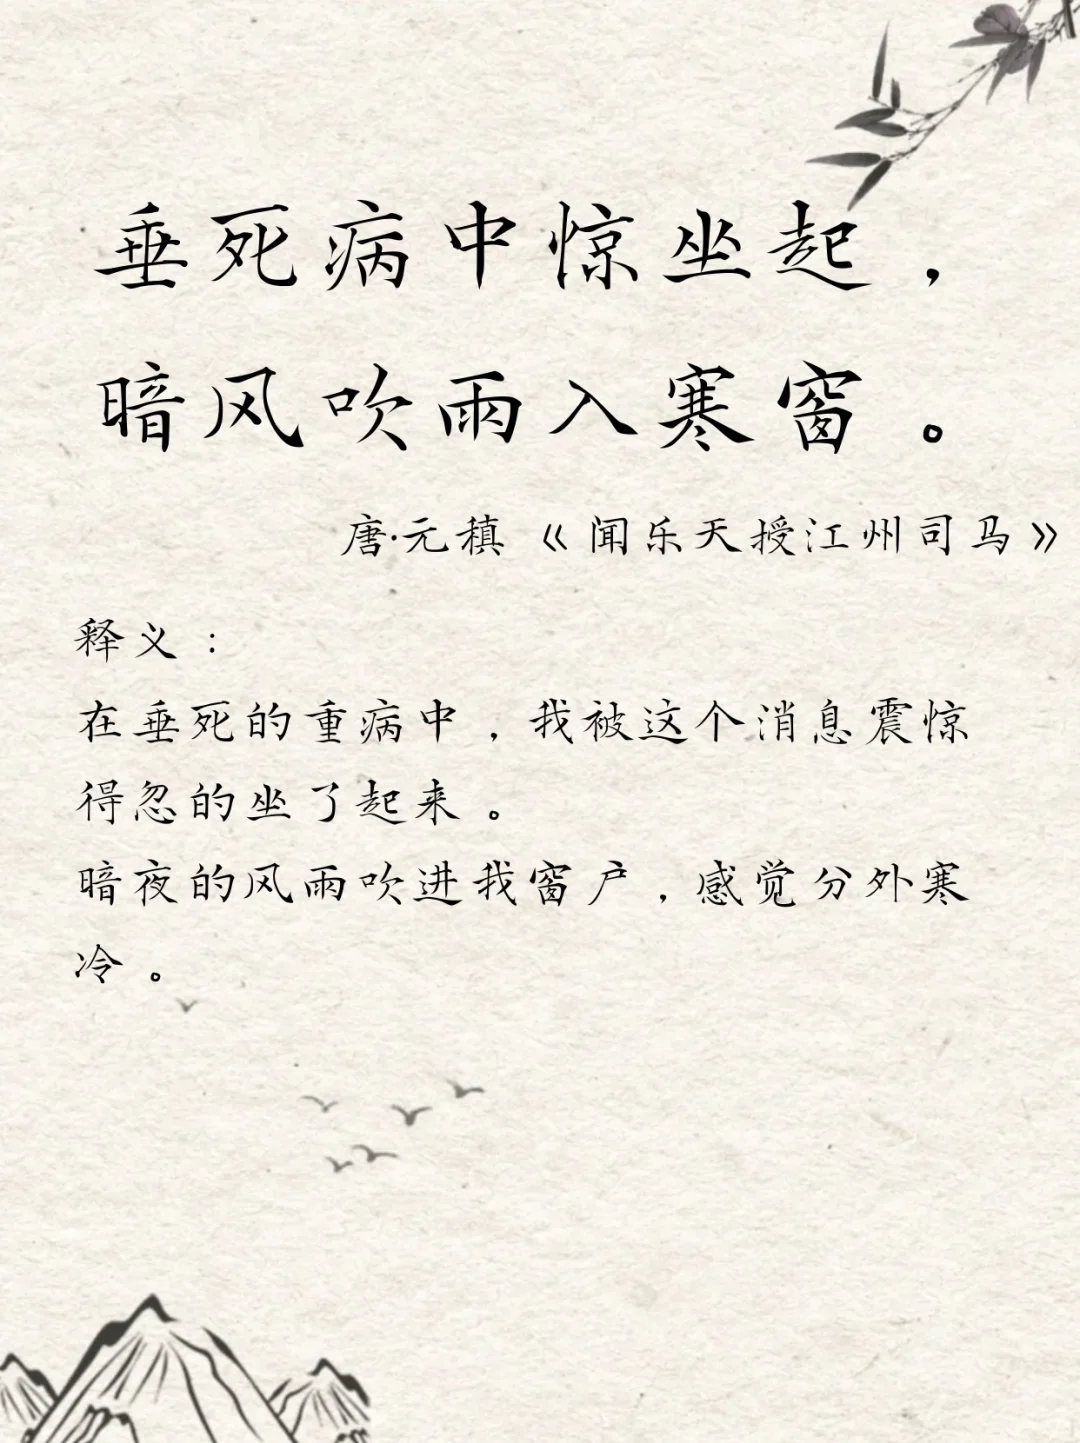 垂死病中惊坐起，
暗风吹雨入寒窗。
唐·元稹《闻乐天授江州司马》
释义：
在垂死的重病中，我被这个消息震惊
得忽的坐了起来。
暗夜的风雨吹进我窗户，感觉分外寒
冷。